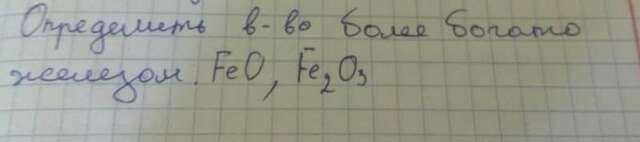 Определить в-во более богато
железом. FeO, Fe₂O₃